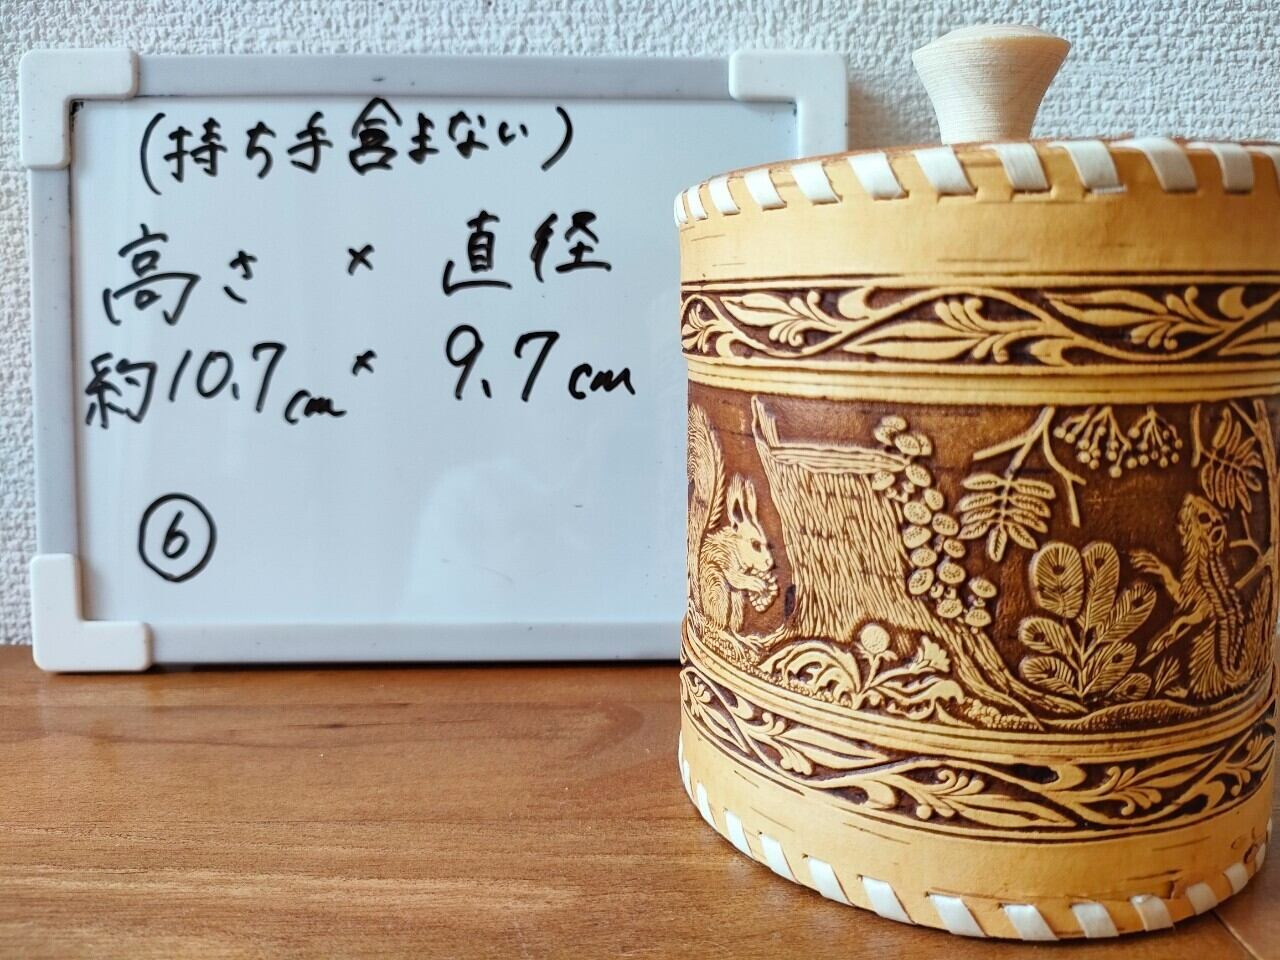 (持ち手含まない)
高さ × 直径
約10.7cm × 9.7cm
⑥